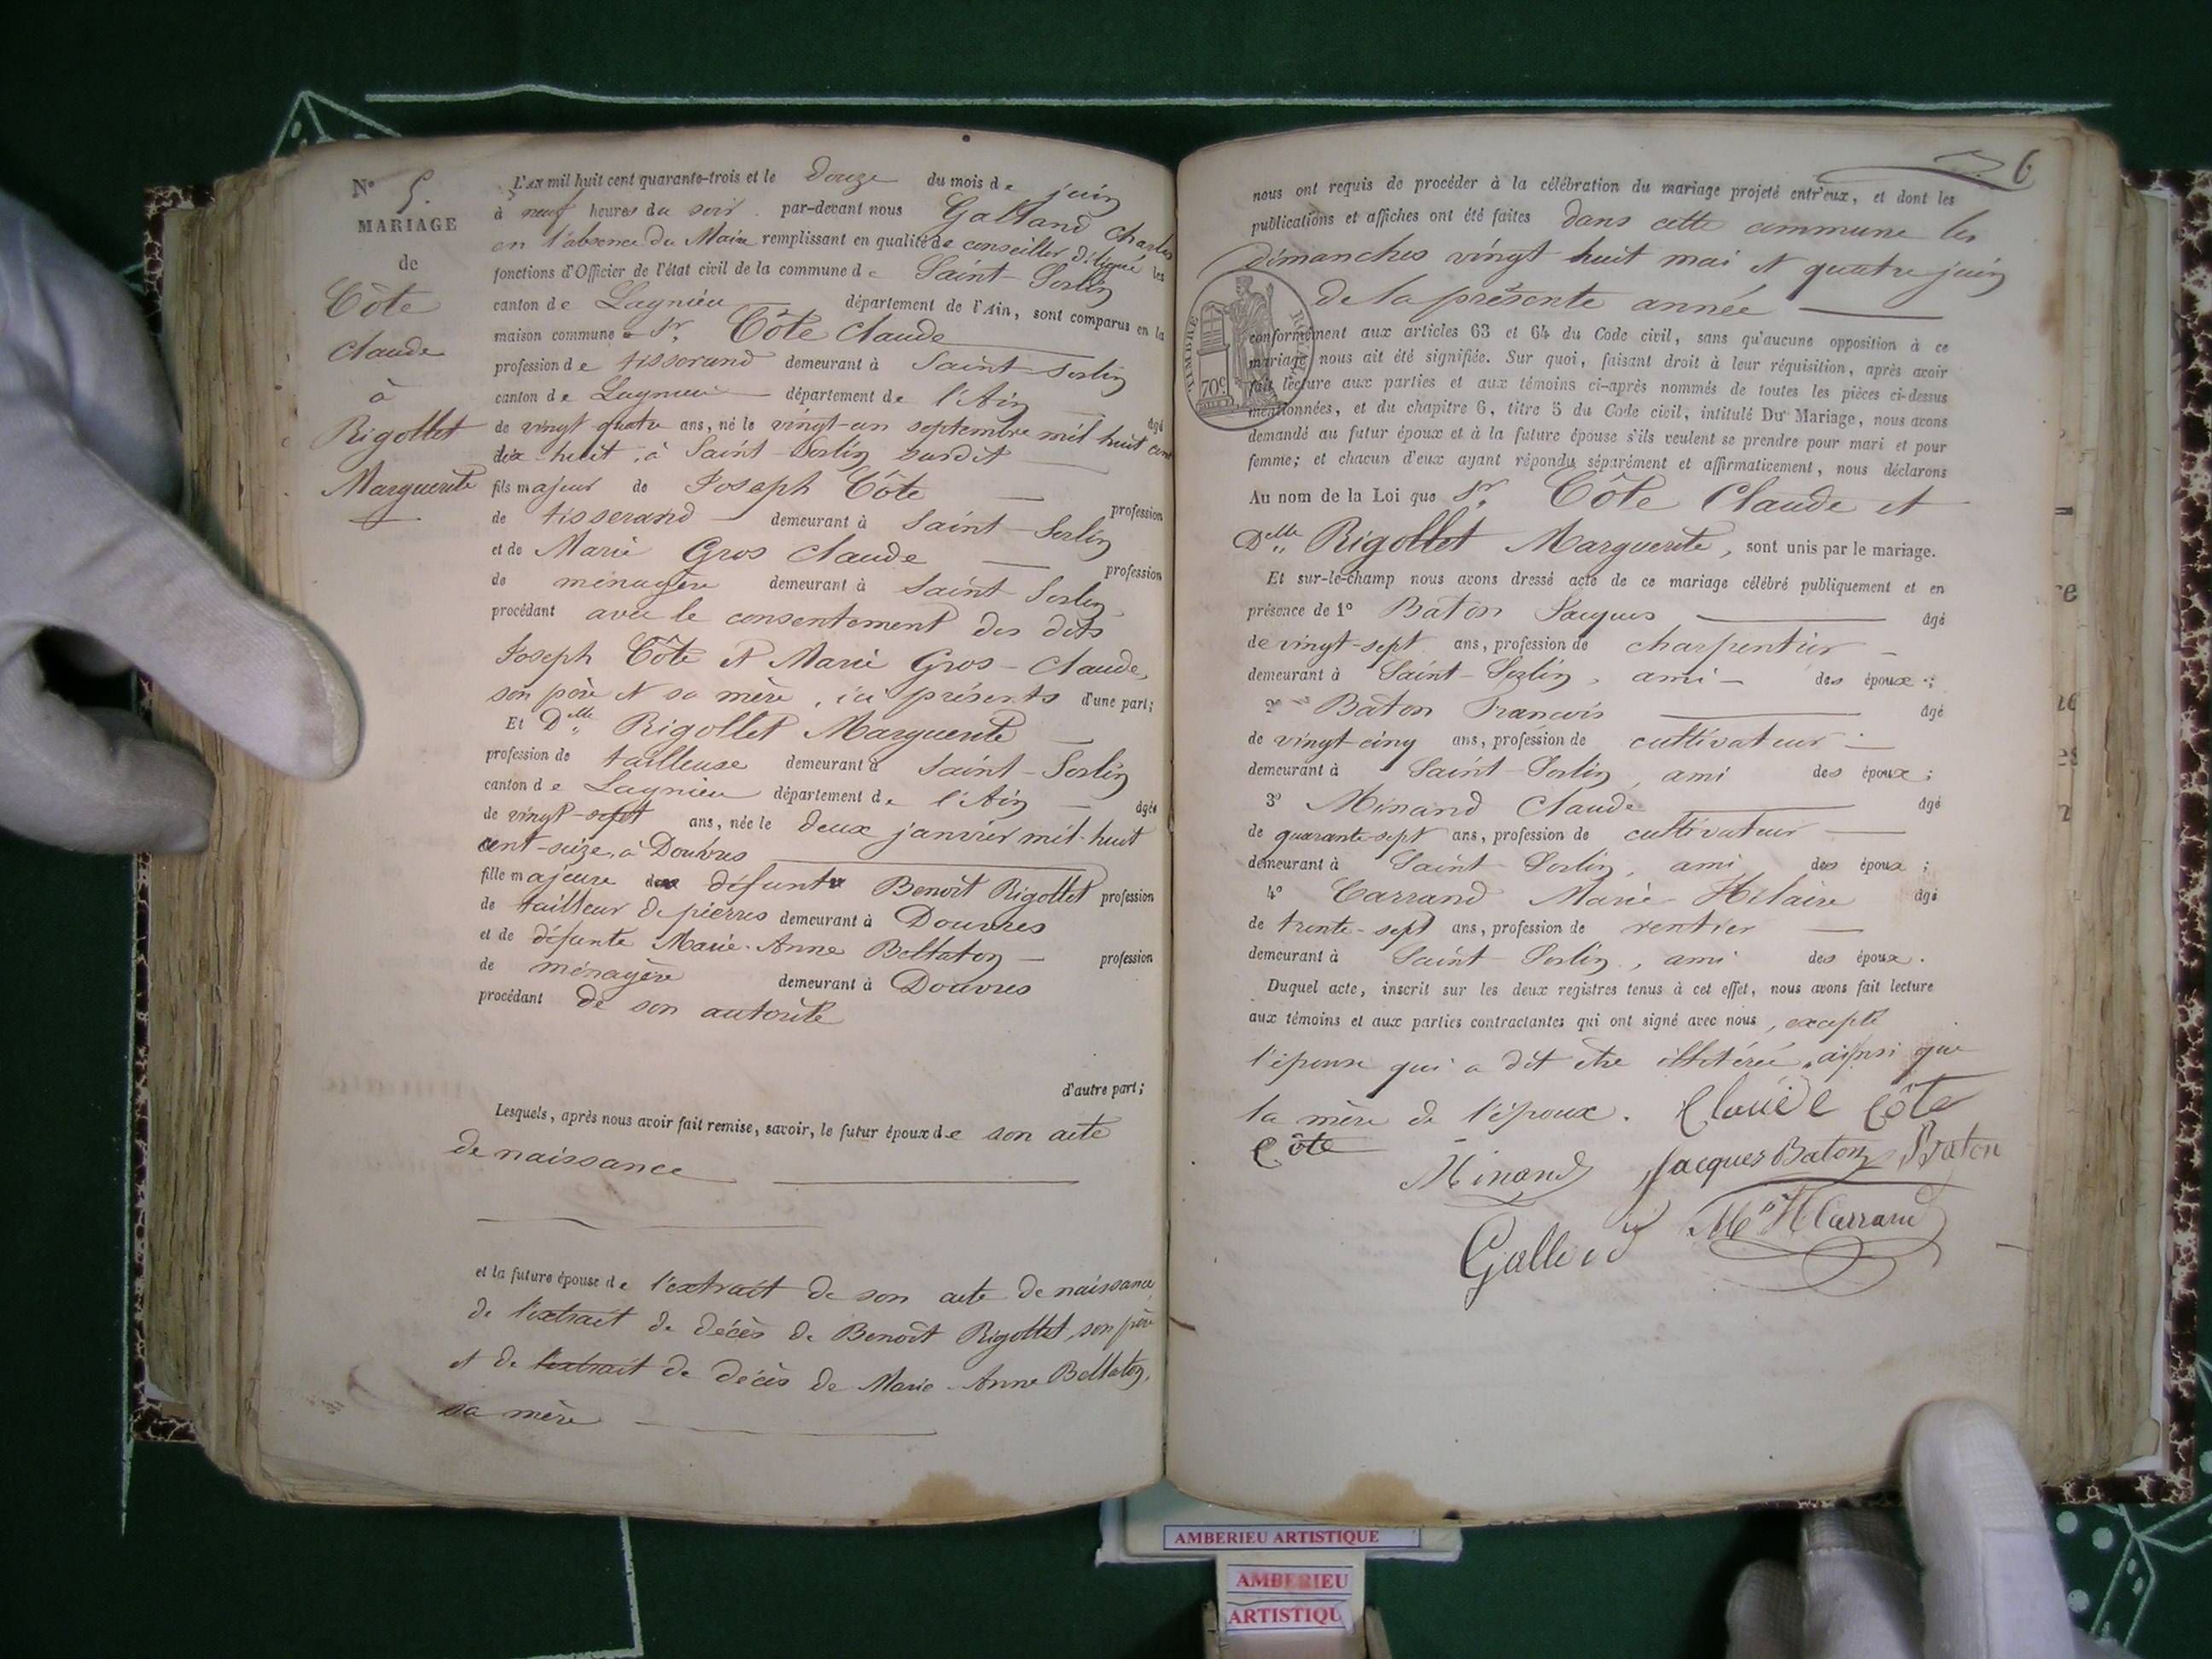 N° 5.
MARIAGE
de
Côte
Claude
à
Rigollet
Marguerite
L'AN mil huit cent quarante-trois et le douze du mois de juin
à neuf heures du soir par-devant nous Galland Charles
en l'absence du Maire remplissant en qualité de conseiller délégué les
fonctions d'Officier de l'état civil de la commune de Saint-Sorlin
canton de Lagnieu département de l'Ain, sont comparus en la
maison commune Sr. Côte Claude
profession de tisserand demeurant à Saint-Sorlin
canton de Lagnieu département de l'Ain agé
de vingt quatre ans, né le vingt-un septembre mil huit cent
dix-huit, à Saint-Sorlin susdit
fils majeur de Joseph Côte profession
de tisserand demeurant à Saint-Sorlin
et de Marie Gros Claude profession
de ménagère demeurant à Saint Sorlin,
procédant avec le consentement des dits
Joseph Côte et Marie Gros-Claude,
son père et sa mère, ici présents d'une part;
Et Delle Rigollet Marguerite
profession de tailleuse demeurant à Saint-Sorlin
canton de Lagnieu département de l'Ain agée
de vingt-sept ans, née le deux janvier mil-huit
cent-seize, à Douvres
fille majeure de défunt Benoît Rigollet profession
de tailleur de pierres demeurant à Douvres
et de défunte Marie-Anne Beltaton profession
de ménagère demeurant à Douvres
procédant de son autorité
d'autre part;
Lesquels, après nous avoir fait remise, savoir, le futur époux de son acte
de naissance
et la future épouse de l'extrait de son acte de naissance,
de l'extrait de décès de Benoît Rigollet, son père
et de l'extrait de décès de Marie-Anne Beltaton,
sa mère
6
nous ont requis de procéder à la célébration du mariage projeté entr'eux, et dont les
publications et affiches ont été faites dans cette commune les
dimanches vingt-huit mai et quatre juin
de la présente année
TIMBRE ROYAL
70c
conformément aux articles 63 et 64 du Code civil, sans qu'aucune opposition à ce
mariage nous ait été signifiée. Sur quoi, faisant droit à leur réquisition, après avoir
fait lecture aux parties et aux témoins ci-après nommés de toutes les pièces ci-dessus
mentionnées, et du chapitre 6, titre 5 du Code civil, intitulé Du Mariage, nous avons
demandé au futur époux et à la future épouse s'ils veulent se prendre pour mari et pour
femme; et chacun d'eux ayant répondu séparément et affirmativement, nous déclarons
Au nom de la Loi que Sr. Côte Claude et
Delle Rigollet Marguerite, sont unis par le mariage.
Et sur-le-champ nous avons dressé acte de ce mariage célébré publiquement et en
présence de 1° Baton Jacques agé
de vingt-sept ans, profession de charpentier
demeurant à Saint-Sorlin, ami des époux;
2° Baton François agé
de vingt-cinq ans, profession de cultivateur
demeurant à Saint-Sorlin, ami des époux;
3° Minand Claude agé
de quarante-sept ans, profession de cultivateur
demeurant à Saint-Sorlin, ami des époux;
4° Carrand Marie-Hilaire agé
de trente-sept ans, profession de rentier
demeurant à Saint-Sorlin, ami des époux.
Duquel acte, inscrit sur les deux registres tenus à cet effet, nous avons fait lecture
aux témoins et aux parties contractantes qui ont signé avec nous, excepté
l'épouse qui a dit être illitérée, ainsi que
la mère de l'époux. Claude Côte
Côte Minand Jacques Baton Baton
Galland Mie H Carrand
AMBERIEU ARTISTIQUE
AMBERIEU
ARTISTIQU